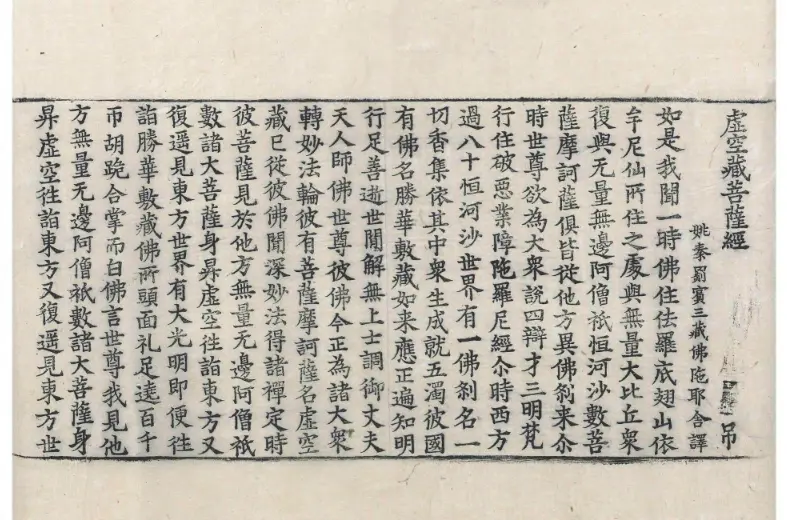 虛空藏菩薩經 吊
姚秦罽賓三藏佛陁耶舍譯
如是我聞一時佛住佉羅底翅山依
牟尼仙所住之處與無量大比丘衆
復與无量無邊阿僧祇恒河沙數菩
薩摩訶薩俱皆從他方異佛剎来尒
時世尊欲為大衆說四辯才三明梵
行住破惡業障陁羅尼經尒時西方
過八十恒河沙世界有一佛剎名一
切香集依其中衆生成就五濁彼國
有佛名勝華敷藏如来應正遍知明
行足善逝世閒解無上士調御丈夫
天人師佛世尊彼佛今正為諸大衆
轉妙法輪彼有菩薩摩訶薩名虛空
藏已從彼佛聞深妙法得諸禪定時
彼菩薩見於他方無量无邊阿僧祇
數諸大菩薩身昇虛空往詣東方又
復遥見東方世界有大光明即便往
詣勝華敷藏佛所頭面礼足遶百千
帀胡跪合掌而白佛言世尊我見他
方無量无邊阿僧祇數諸大菩薩身
昇虛空往詣東方又復遥見東方世